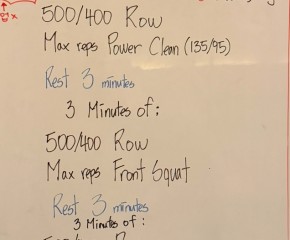 500/400 Row
Max reps Power Clean (135/95)
Rest 3 minutes
3 Minutes of:
500/400 Row
Max reps Front Squat
Rest 3 minutes
3 Minutes of: